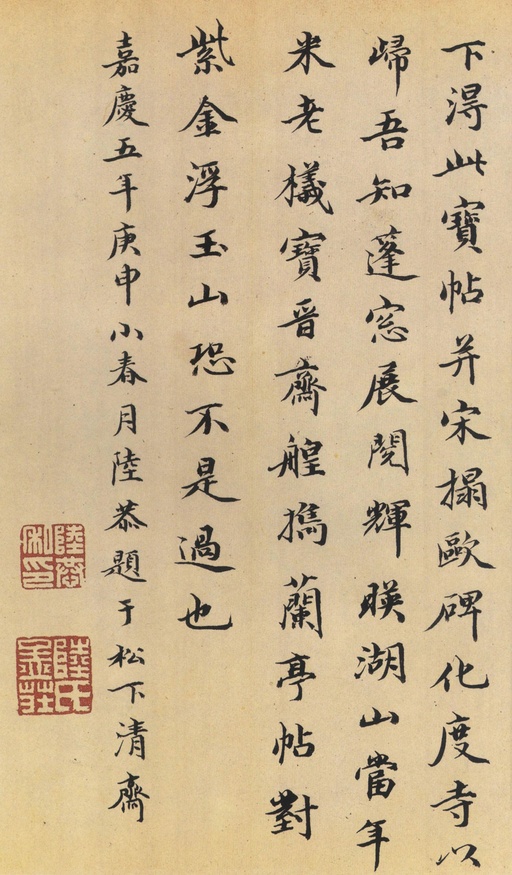 下得此寶帖并宋搨歐碑化度寺以
歸吾知蓬窓展閱輝暎湖山當年
米老檥寶晉齋艎撝蘭亭帖對
紫金浮玉山恐不是過也
嘉慶五年庚申小春月陸恭題于松下清齋
陸恭私印
陸氏孟莊